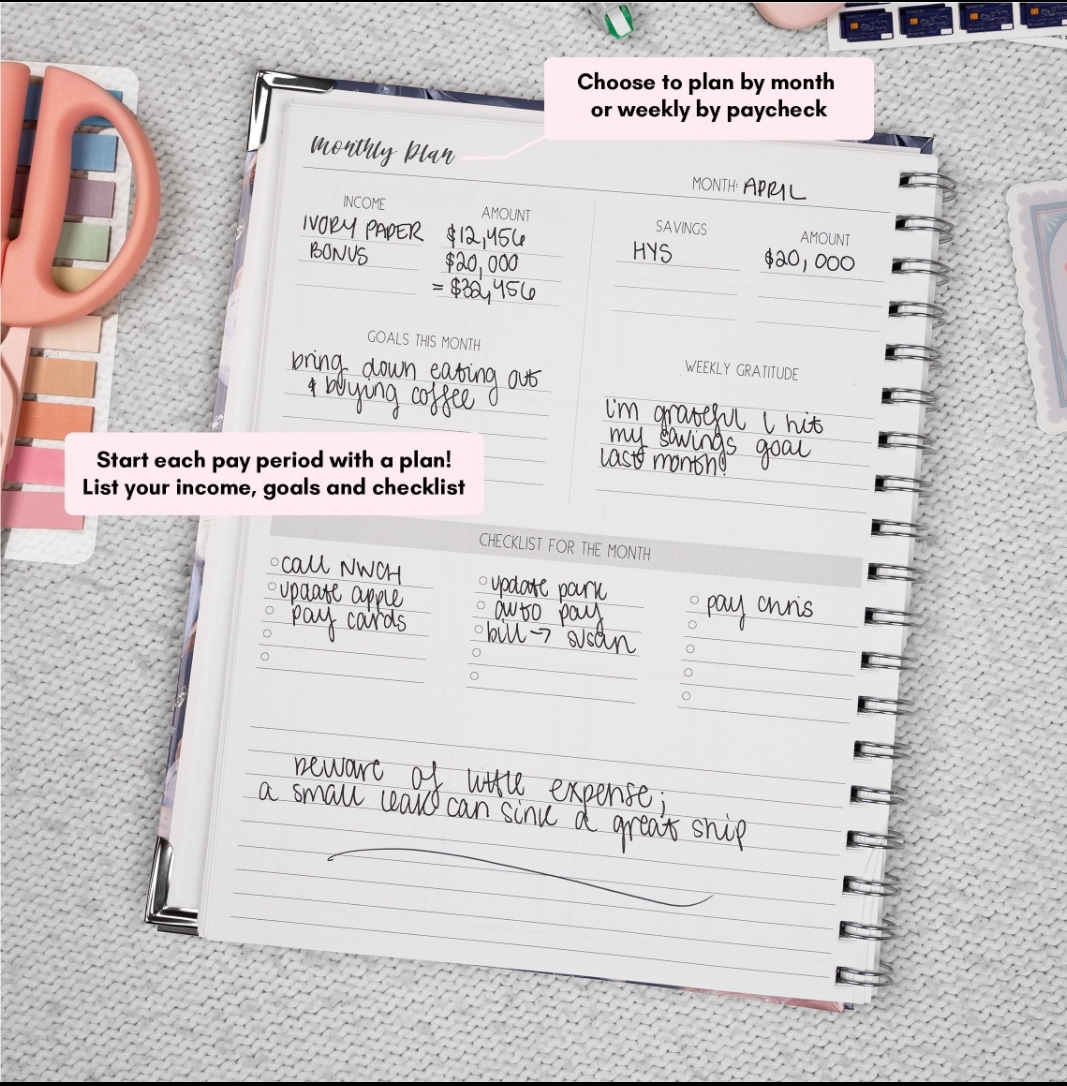 Choose to plan by month
or weekly by paycheck
Monthly Plan
MONTH: APRIL
INCOME AMOUNT
IVORY PAPER $12,456
BONUS $20,000
= $32,456
SAVINGS AMOUNT
HYS $20,000
GOALS THIS MONTH
bring down eating out
& buying coffee
WEEKLY GRATITUDE
I'm grateful I hit
my savings goal
last month!
Start each pay period with a plan!
List your income, goals and checklist
CHECKLIST FOR THE MONTH
call NWCH
update apple
pay cards
update park
auto pay
bill → susan
pay chris
beware of little expense;
a small leak can sink a great ship